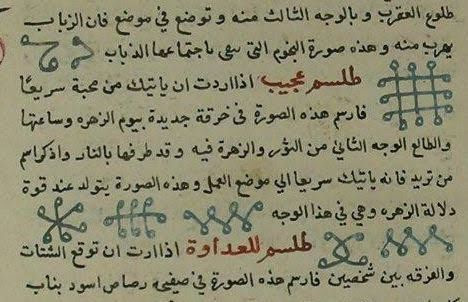 طلوع العقرب و بالوجه الثالث منه و توضع في موضع فان الذباب
يهرب منه و هذه صورة النجوم التي ينفى باجتماعها الذباب
طلسم عجيب اذا اردت ان ياتيك من محبة سريعا
فارسم هذه الصورة في خرقة جديدة بيوم الزهره وساعتها
والطالع الوجه الثاني من الثور والزهرة فيه و قد طرفها بالنار واذكر اسم
من تريد فانه ياتيك سريعا الي موضع العمل وهذه الصورة يتولد عند قوة
دلالة الزهره وهي في هذا الوجه
طلسم للعداوة اذا اردت ان توقع الشتات
والفرقه بين شخصين فارسم هذه الصورة في صفيحة رصاص اسود بناب